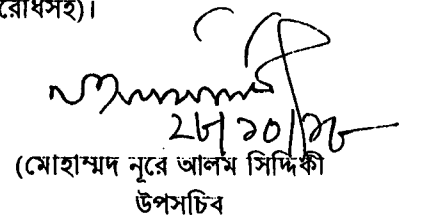 রোধসহ)।
২৮/১০/১৮
(মোহাম্মদ নূরে আলম সিদ্দিকী
উপসচিব